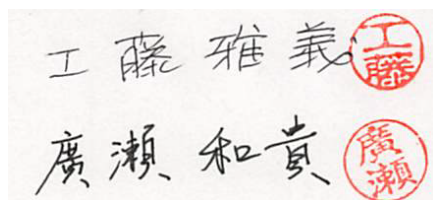 工藤 雅義 工藤
廣瀬 和貴 廣瀬